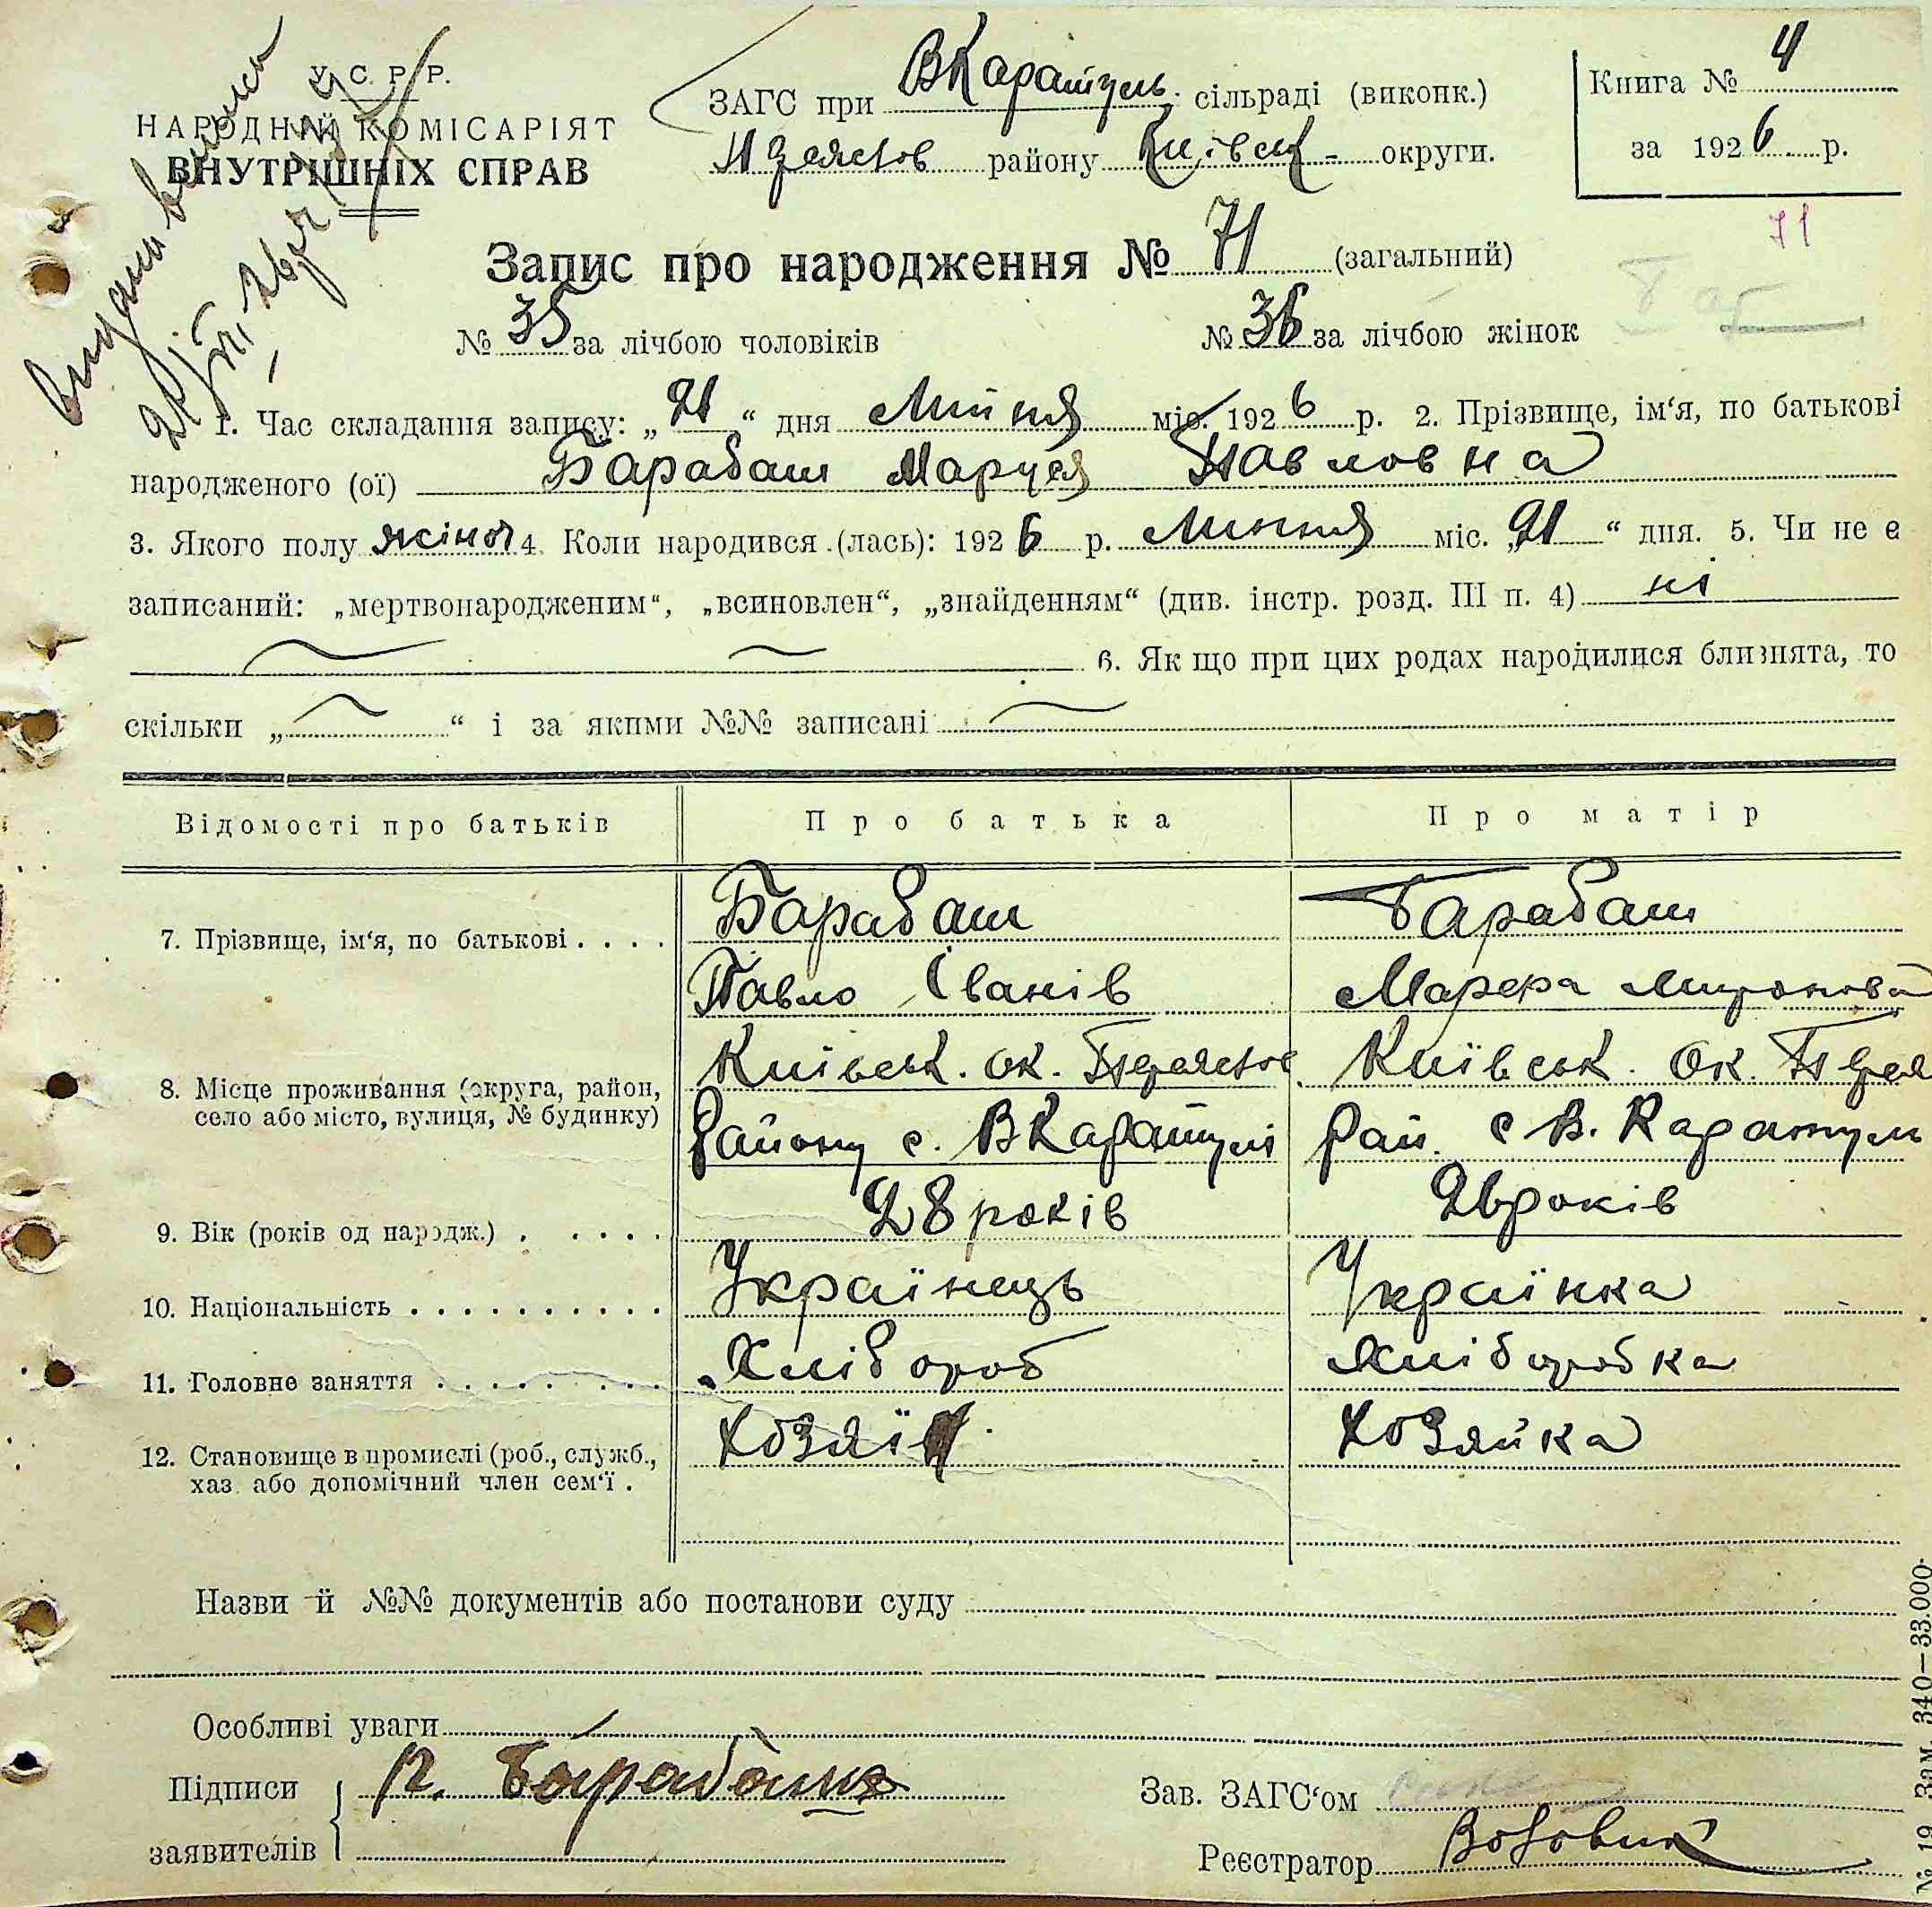 У. С. Р. Р.
НАРОДНИЙ КОМІСАРІЯТ
ВНУТРІШНІХ СПРАВ
ЗАГС при ВКаратуль. сільраді (виконк.)
району Київськ округи.
Книга № 4
за 1926 р.
71
Запис про народження № 71 (загальний)
№ 35 за лічбою чоловіків № 36 за лічбою жінок
1. Час складання запису: „21“ дня Липня міс. 1926 р. 2. Прізвище, ім‘я, по батькові
народженого (ої) Барабаш Маруся Павловна
3. Якого полу жіноч 4. Коли народився (лась): 1926 р. Липня міс. „21“ дня. 5. Чи не є
записаний: „мертвонародженим“, „всиновлен“, „знайденням“ (див. інстр. розд. III п. 4) ні
6. Як що при цих родах народилися близнята, то
скільки „ “ і за якими №№ записані
Відомості про батьків Про батька Про матір
7. Прізвище, ім‘я, по батькові . . . . Барабаш Барабаш
Павло Іванів Мироновa
8. Місце проживання (округа, район, Київськ. ок. Київськ. Ок.
село або місто, вулиця, № будинку) Району с. ВКаратулі Рай. с В. Каратуль
9. Вік (років од народж.) . . . . . 28 років 26 років
10. Національність . . . . . . . . . . Українець Українка
11. Головне заняття . . . . . . . . . Хлібороб Хліборобка
12. Становище в промислі (роб., служб., Хозяїн Хозяйка
хаз. або допомічний член сем‘ї .
Назви й №№ документів або постанови суду
Особливі уваги
Підписи П. Барабаш Зав. ЗАГС‘ом
заявителів Реєстратор Вововик
№ 19 Зам. 340—33.000.